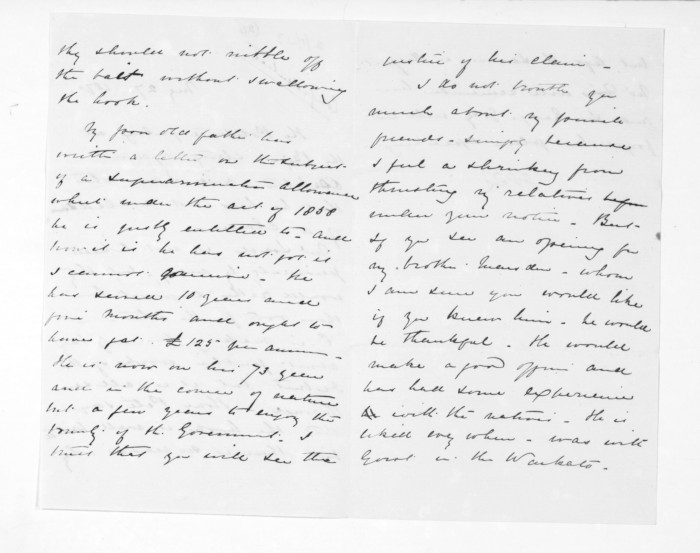 they should not nibble off
the bait without swallowing
the hook.
My poor old father has
written a letter on the subject
of a superannuation allowance
which under the act of 1858
he is justly entitled to and
how it is he has not got it
I cannot conceive. He
has served 10 years and
five months and ought to
have got £125 per annum.
He is now in his 73 year
and in the course of nature
but a few years to enjoy the
bounty of the Government. I
trust that you will see the
justice of his claim -
I do not trouble you
much about my family
friends - simply because
I feel a shrinking from
thrusting my relatives
under your notice - But
if you see an opening for
my brother Marsden - whom
I am sure you would like
if you knew him - he would
be thankful. He would
make a good officer and
has had some experience
with the natives. He is
liked every where - was with
Gorst in the Waikato -